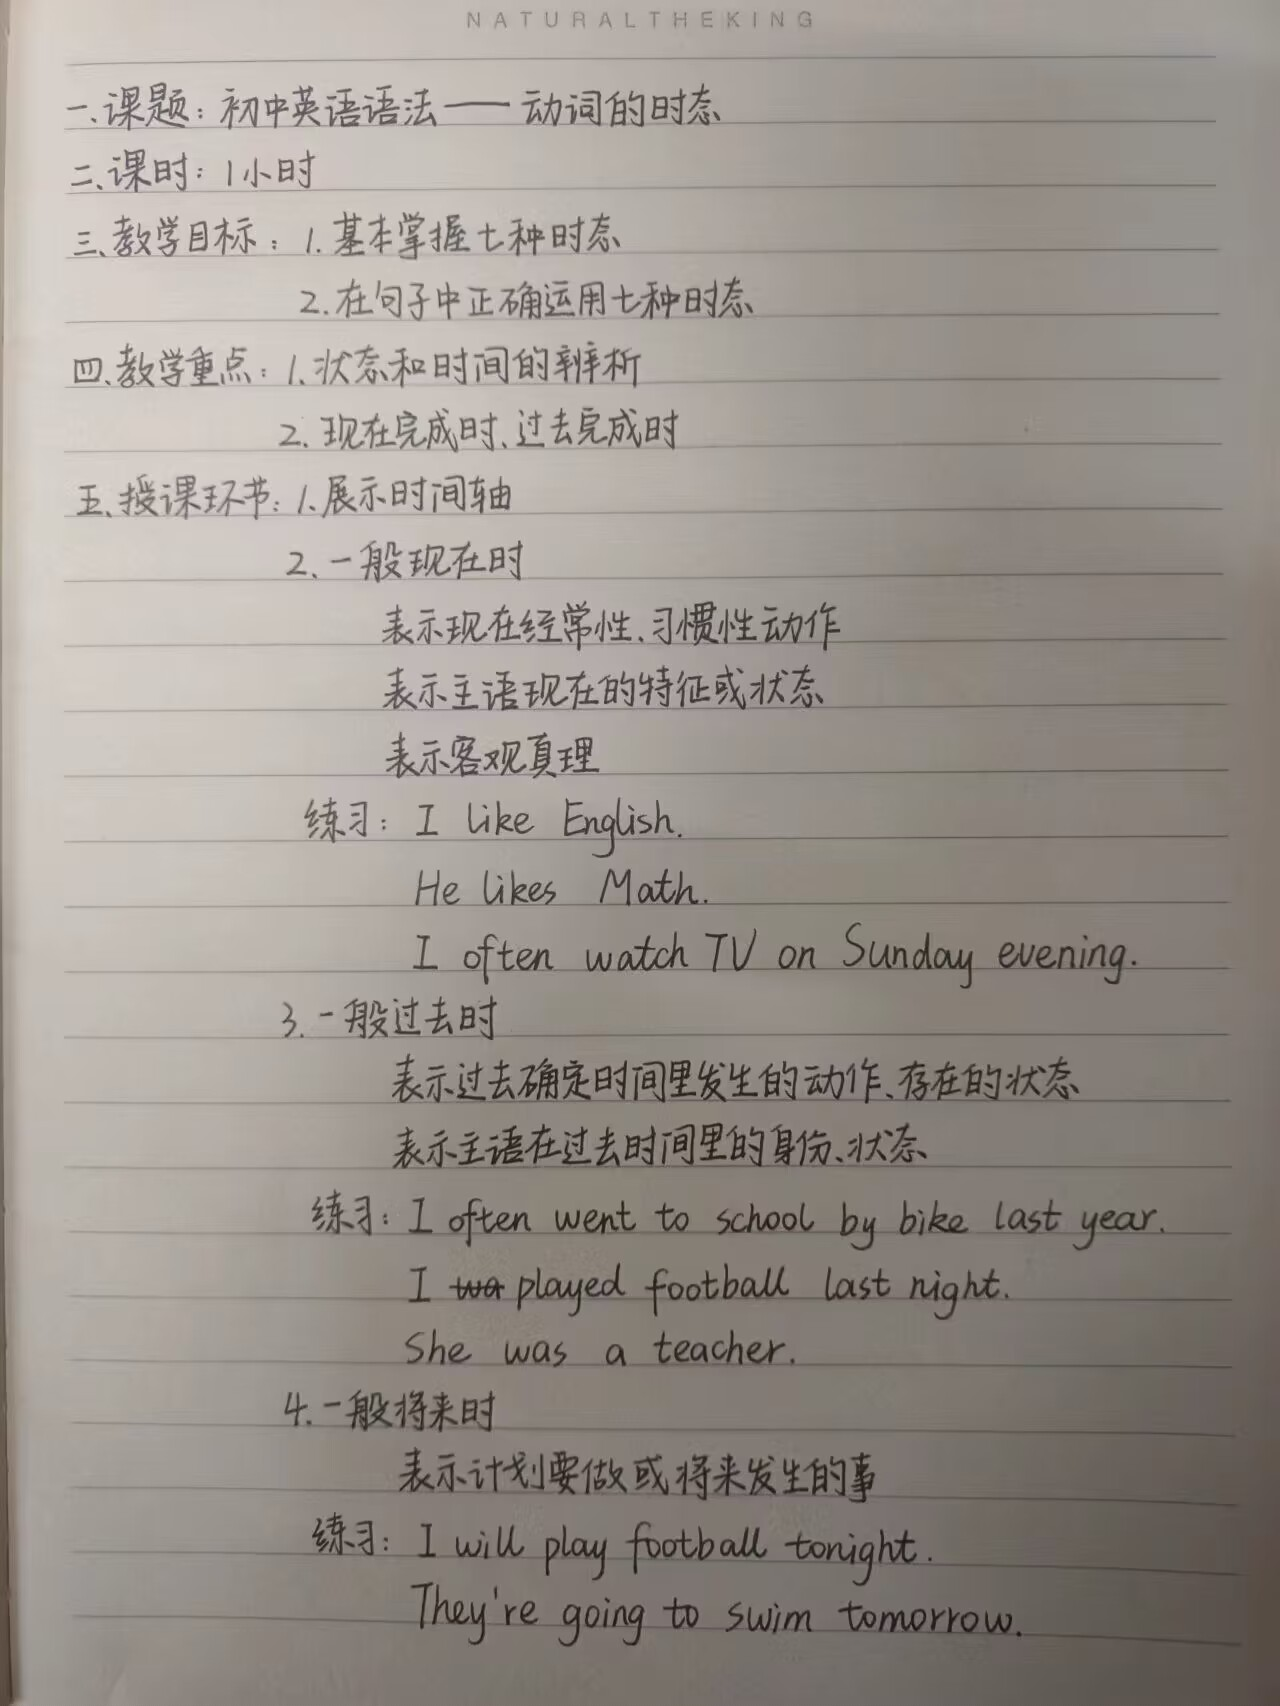 NATURALTHEKING
一.课题：初中英语语法——动词的时态
二、课时：1小时
三、教学目标：1.基本掌握七种时态
2.在句子中正确运用七种时态
四.教学重点：1.状态和时间的辨析
2.现在完成时、过去完成时
五.授课环节：1.展示时间轴
2.一般现在时
表示现在经常性、习惯性动作
表示主语现在的特征或状态
表示客观真理
练习：I like English.
He likes Math.
I often watch TV on Sunday evening.
3.一般过去时
表示过去确定时间里发生的动作、存在的状态
表示主语在过去时间里的身份、状态
练习：I often went to school by bike last year.
I wa played football last night.
She was a teacher.
4.一般将来时
表示计划要做或将来发生的事
练习：I will play football tonight.
They're going to swim tomorrow.